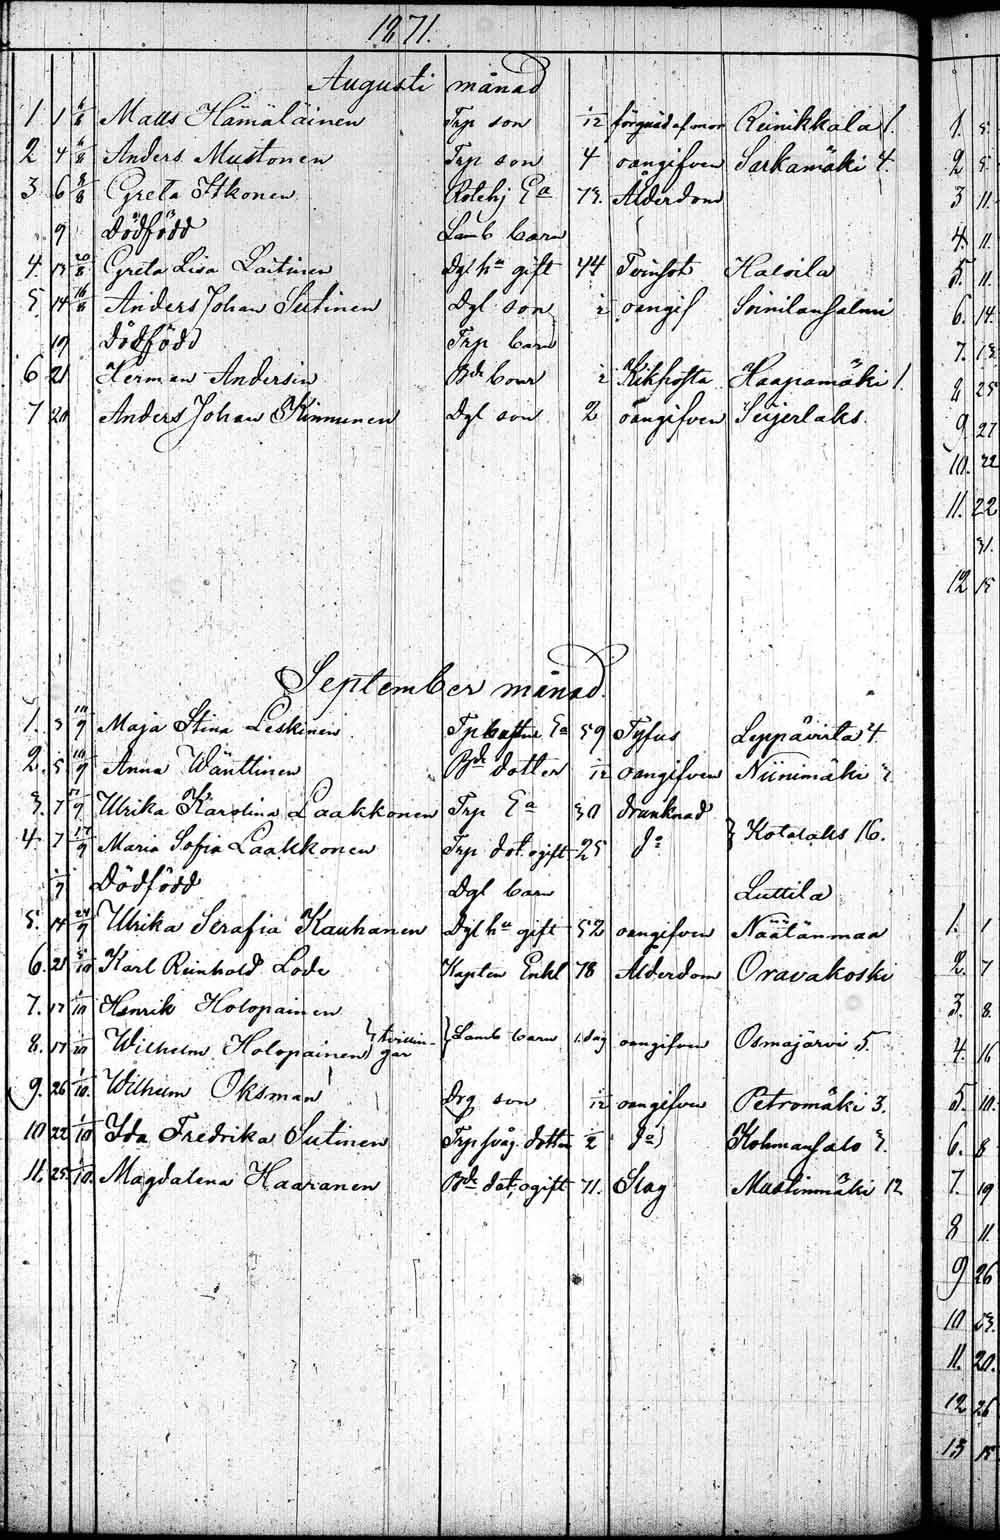 1871.
Augusti månad
1 1 6/8 Mats Hämäläinen Trp son 1/12 förqväd af mor Reinikkala 1.
2 4 6/8 Anders Mustonen Trp son 4 oangifven Sarkamäki 4.
3 6 8/8 Greta Itkonen Rotehj Ea 73. Ålderdom
9 Dödfödd Lamb barn
4. 13 20/8 Greta Lisa Laitinen Dgl hu gift 44 Tvinsot Halola
5. 14 16/8 Anders Johan Sutinen Dgl son oangif Soinilansalmi
19 Dödfödd Trp barn
6 21 Herman Andersin Bde Kikhosta Haapamäki 1
7 20 Anders Johan Kinnunen Dgl son 2 oangifven Seijerlaks.
September månad.
1. 3 10/9 Maja Stina Leskinen Ea 59 Tyfus Leppävirta 4.
2. 5 10/9 Anna Wänttinen Bde dotter 1/12 oangifven Niinimäki
3. 7 17/9 Ulrika Karolina Laakkonen Trp Ea 30 drunknad
4. 7 17/9 Maria Sofia Laakkonen Trp dot. ogift 25 do } Kotalaks 16.
7 Dödfödd Dgl barn Luttila
5. 14 24/9 Ulrika Serafia Kauhanen Dgl hu gift 52 oangifven Näätänmaa
6. 21 5/10 Karl Reinhold Lode Kapten Enkl 78 Ålderdom Oravakoski
7. 17 1/10 Henrik Holopainen
8. 17 1/10 Wilhelm Holopainen } tvillingar } Lamb barn 1. dag oangifven Osmajärvi 5.
9. 26 1/10. Wilhelm Oksman Drg son 1/12 oangifven Petromäki 3.
10 22 1/10 Ida Fredrika Sutinen Trp dotter 1/2 do Kohmansalo 3.
11. 25. 1/10. Magdalena Haaranen Bde dot. ogift 71. Slag Mustinmäki 12
1. 5.
2 5
3 11.
4. 11.
5. 11.
6. 14.
7. 13
8 25
9 27
10. 22
11. 22
31.
12 15
1. 1
2. 7
3. 8.
4. 16
5. 10.
6. 8
7. 19
8 11.
9 26
10 23.
11. 20.
12 26
13 15